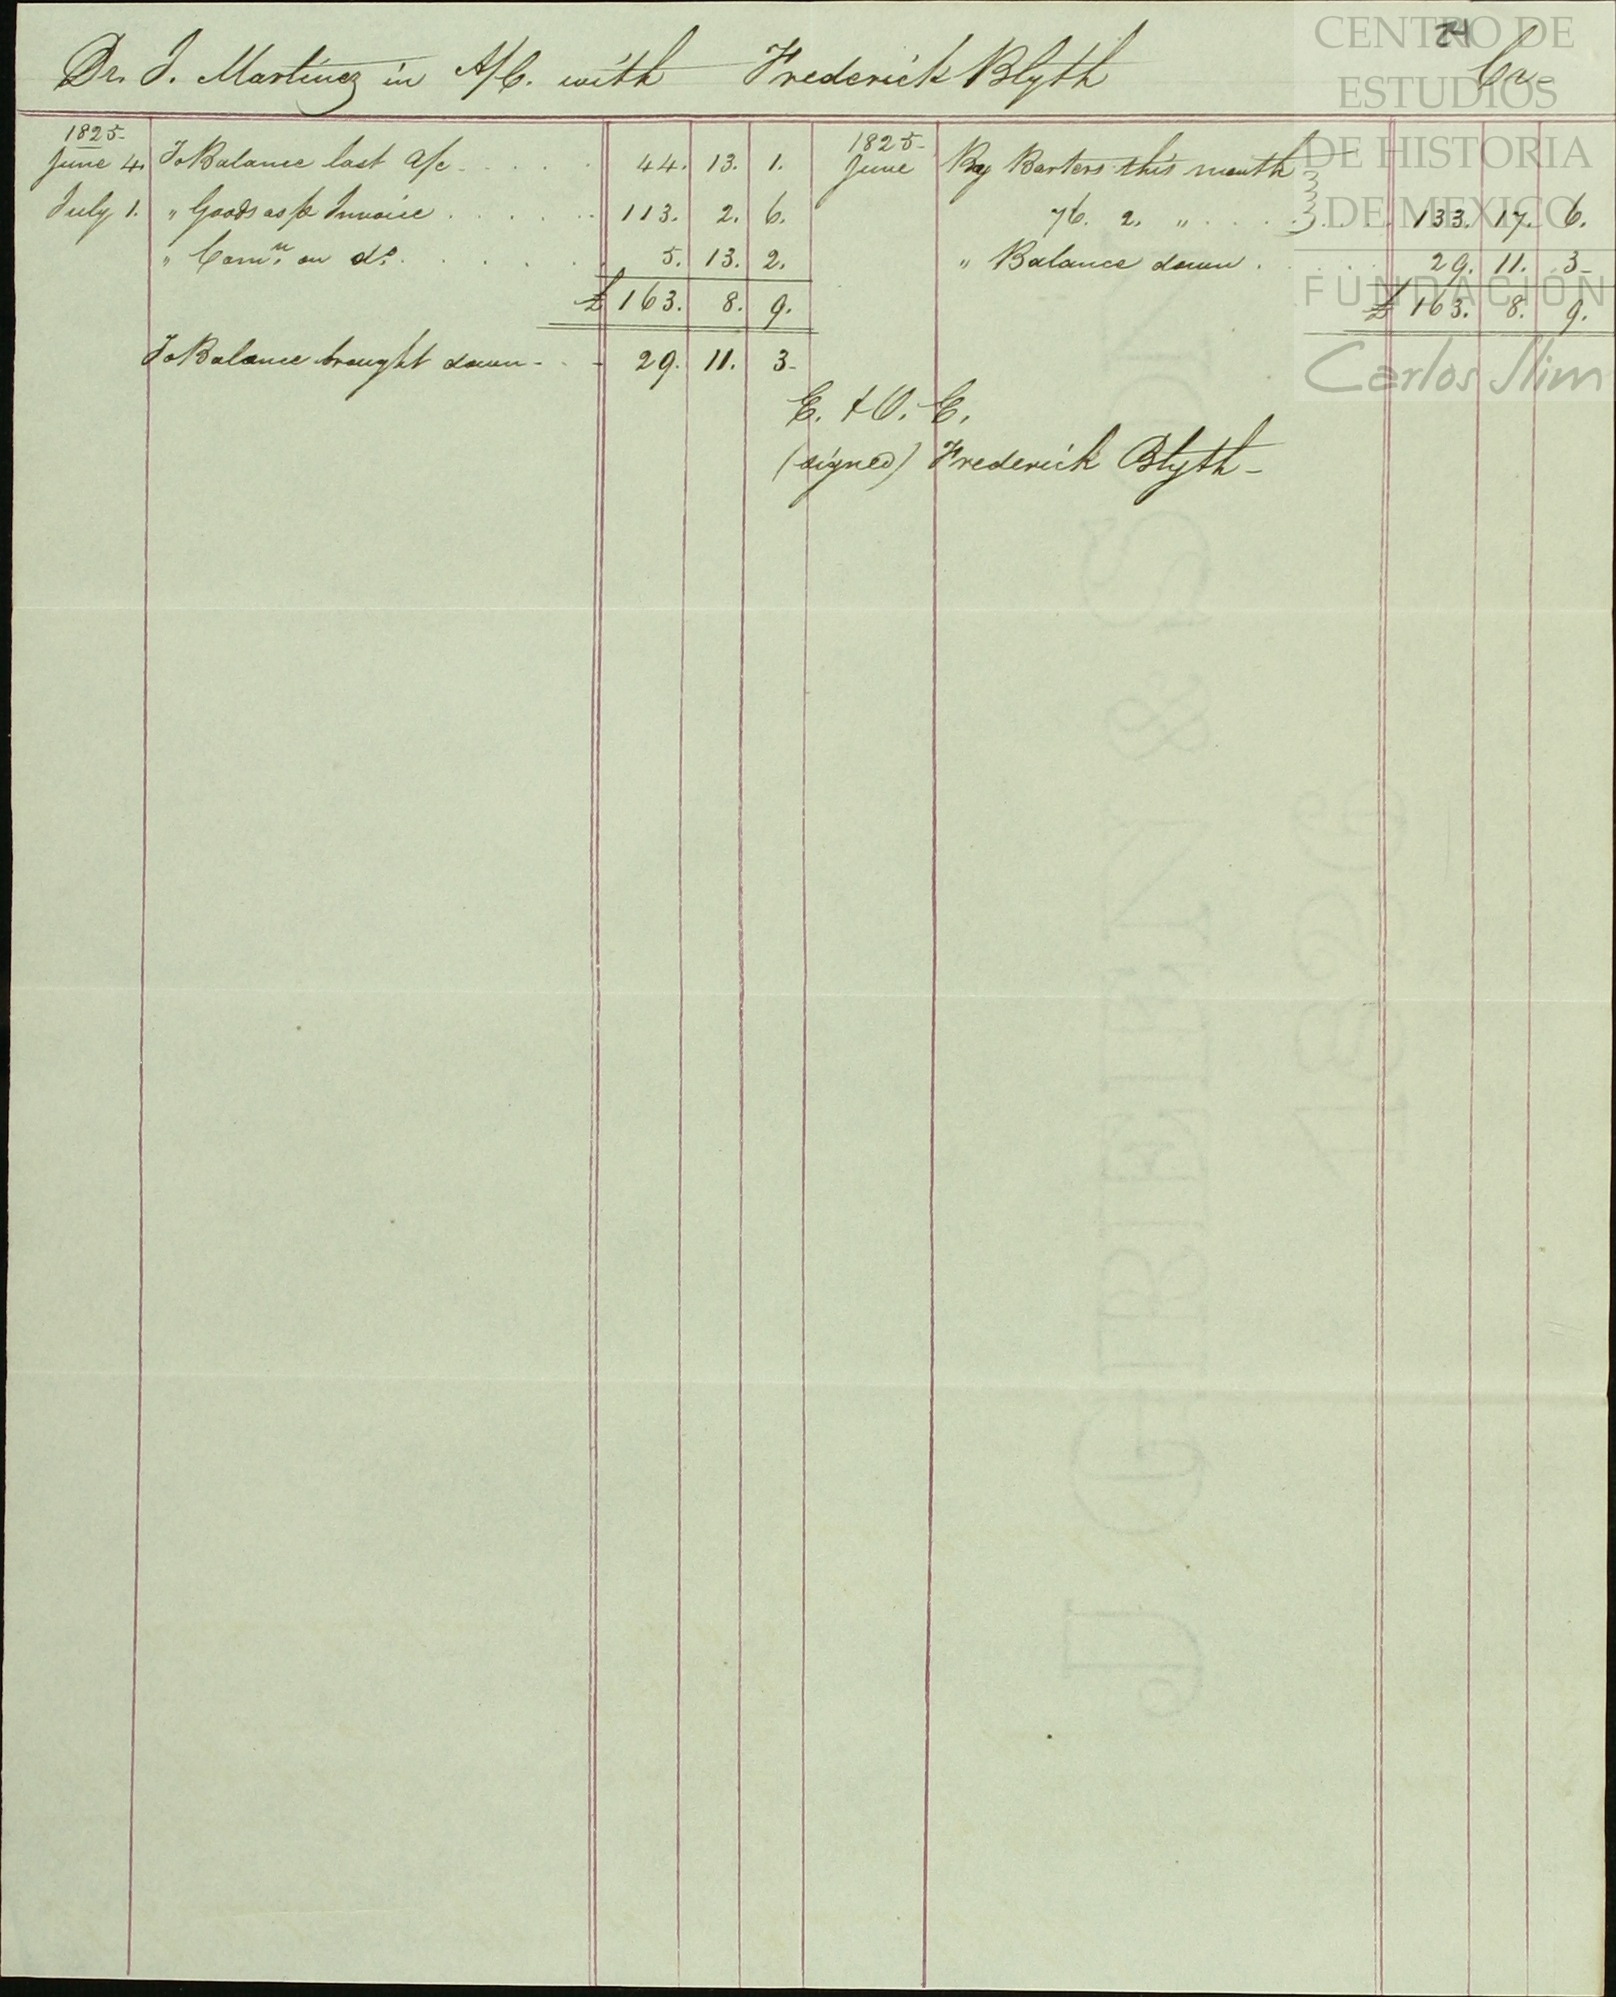 24
Dr. J. Martinez in A/C. with Frederick Blyth Cr.
1825.
June 4. To Balance last a/c . . . . 44. 13. 1.
July 1. " Goods as pr Invoice . . . . . . 113. 2. 6.
" Comn. on do. . . . . . 5. 13. 2.
£ 163. 8. 9.
To Balance brought down - . - 29. 11. 3-
1825-
June By Barters this month
76. 2. " . . . . 133. 17. 6.
" Balance down . . . . 29. 11. 3-
£ 163. 8. 9.
E. & O. E.
(signed) Frederick Blyth-
CENTRO DE
ESTUDIOS
DE HISTORIA
DE MEXICO
FUNDACIÓN
Carlos Slim
J GREEN & SON
1826